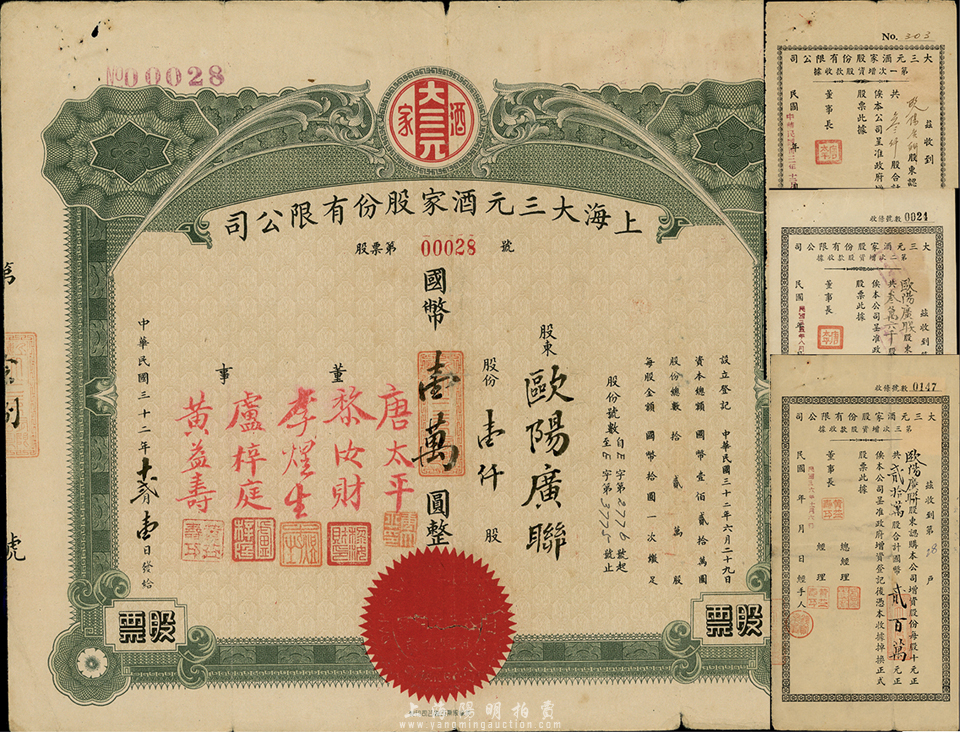 No 00028
大三元
酒家
上海大三元酒家股份有限公司
股票第 00028 號
設立登記 中華民國三十二年六月二十九日
資本總額 國幣壹佰貳拾萬圓
股份總數 拾貳萬股
每股金額 國幣拾圓一次繳足
股份號數 自E字第2776號起
至E字第3775號止
股東 歐陽廣聯
股份 壹仟 股
國幣 壹萬 圓整
董事
唐太平
黎汝財
李煜生
盧梓庭
黃益壽
中華民國三十二年十二月壹日發給
股票
股票
號
No. 303
大三元酒家股份有限公司
第一次增資股款收據
茲收到
股東認
共 股合計
俟本公司呈准政府
股票此據
董事長
民國 年
收條號數 0024
大三元酒家股份有限公司
第二次增資股款收據
茲收到
歐陽廣聯股東
共叁萬六千股
俟本公司呈准政
股票此據
董事長
民國
收條號數 0147
大三元酒家股份有限公司
第三次增資股款收據
茲收到第28戶
歐陽廣聯股東認購本公司增資股份每股十元正
共貳拾萬股合計國幣貳百萬元正
俟本公司呈准政府增資登記後憑本收據掉換正式
股票此據
董事長 總經理
經理
民國 年 月 日經手人
上海陽明拍賣
www.yangmingauction.com